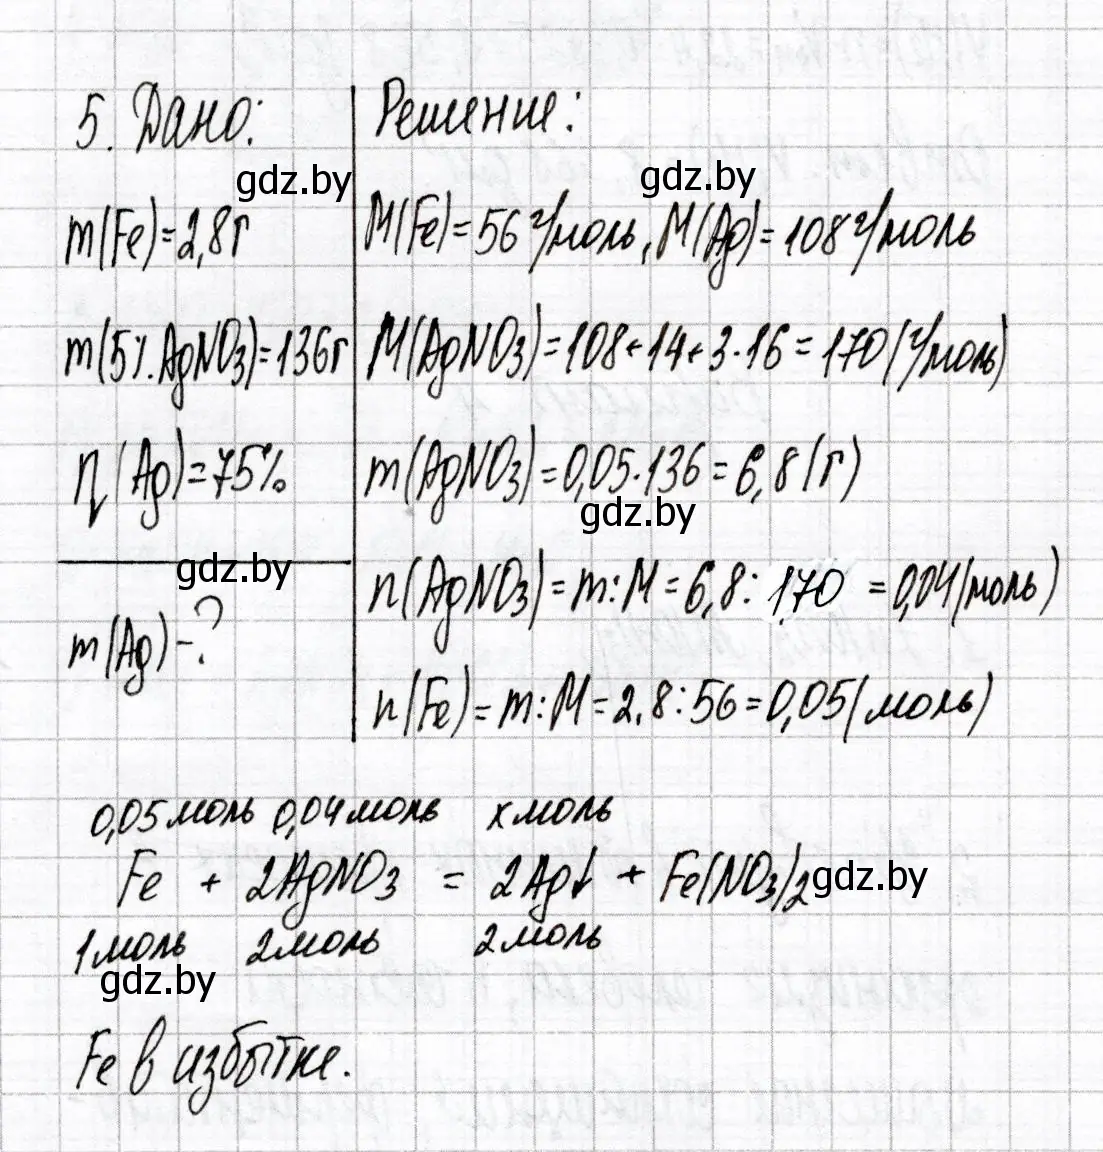 5. Дано:
gdz.by
m(Fe)=2,8г
m(5%.AgNO3)=136г
η(Ag)=75%
gdz.by
m(Ag)-?
Решение:
gdz.by
M(Fe)=56 г/моль, M(Ag)=108 г/моль
M(AgNO3)=108+14+3·16=170(г/моль)
m(AgNO3)=0,05·136=6,8(г)
gdz.by
n(AgNO3)=m:M=6,8:170=0,04(моль)
n(Fe)=m:M=2,8:56=0,05(моль)
0,05 моль 0,04 моль x моль
Fe + 2AgNO3 = 2Ag↓ + Fe(NO3)2 gdz.by
1 моль 2 моль 2 моль
gdz.by
Fe в избытке.